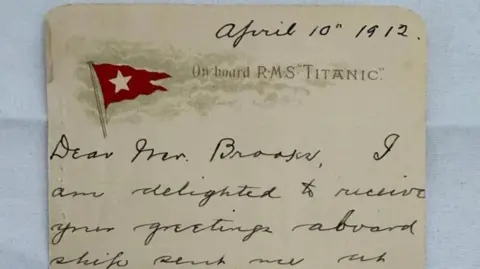 April 10" 1912.
On board R·M·S "TITANIC".
Dear Mr. Brooks, I
am delighted to receive
your greetings aboard
ship sent me at